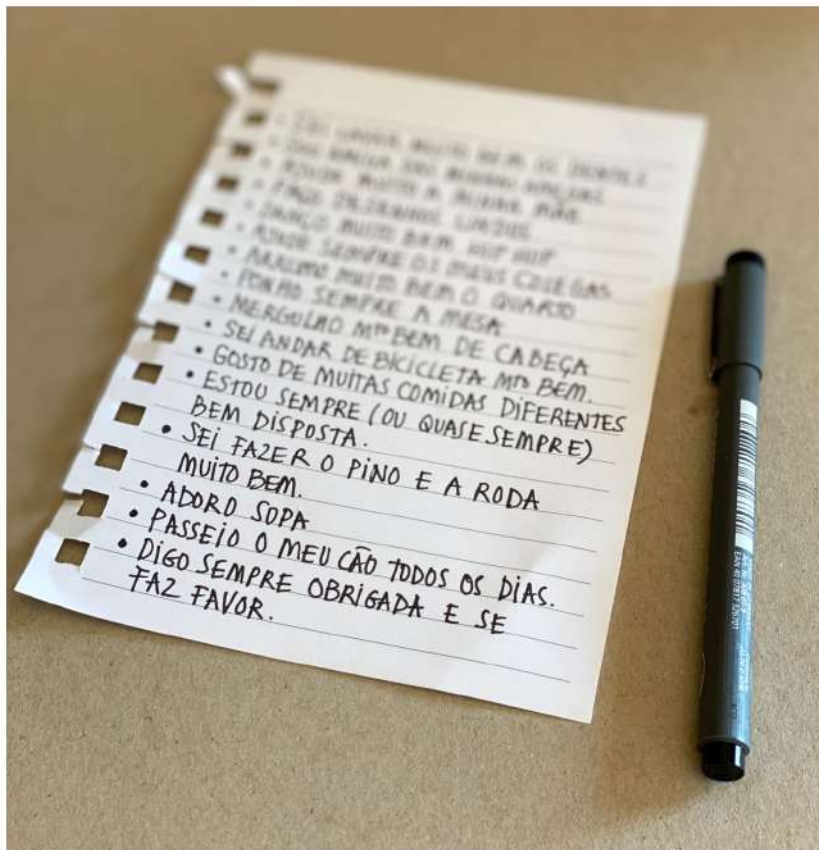 • SEI LAVAR MUITO BEM OS DENTES
• AJUDO MUITO A MINHA MÃE
• FAÇO DESENHOS LINDOS
• DANÇO MUITO BEM HIP HOP
• AJUDO SEMPRE OS MEUS COLEGAS
• ARRUMO MUITO BEM O QUARTO
• PONHO SEMPRE A MESA
• MERGULHO MTO BEM DE CABEÇA
• SEI ANDAR DE BICICLETA MTO BEM.
• GOSTO DE MUITAS COMIDAS DIFERENTES
• ESTOU SEMPRE (OU QUASE SEMPRE)
BEM DISPOSTA.
• SEI FAZER O PINO E A RODA
MUITO BEM.
• ADORO SOPA
• PASSEIO O MEU CÃO TODOS OS DIAS.
• DIGO SEMPRE OBRIGADA E SE
FAZ FAVOR.